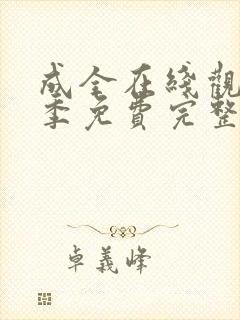 成全在綫觀
季免費完整
卓義峰